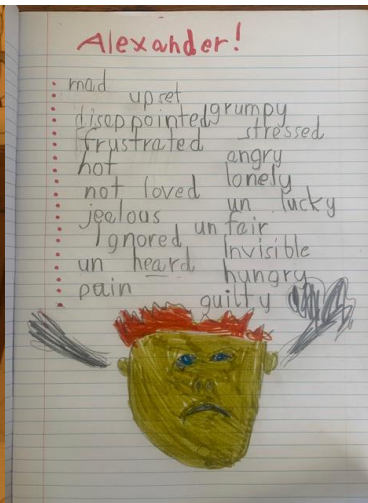 Alexander!
mad
upset
disappointed grumpy
frustrated stressed
hot angry
not loved lonely
jealous un lucky
Ignored un fair
un heard Invisible
pain hungry
guilty